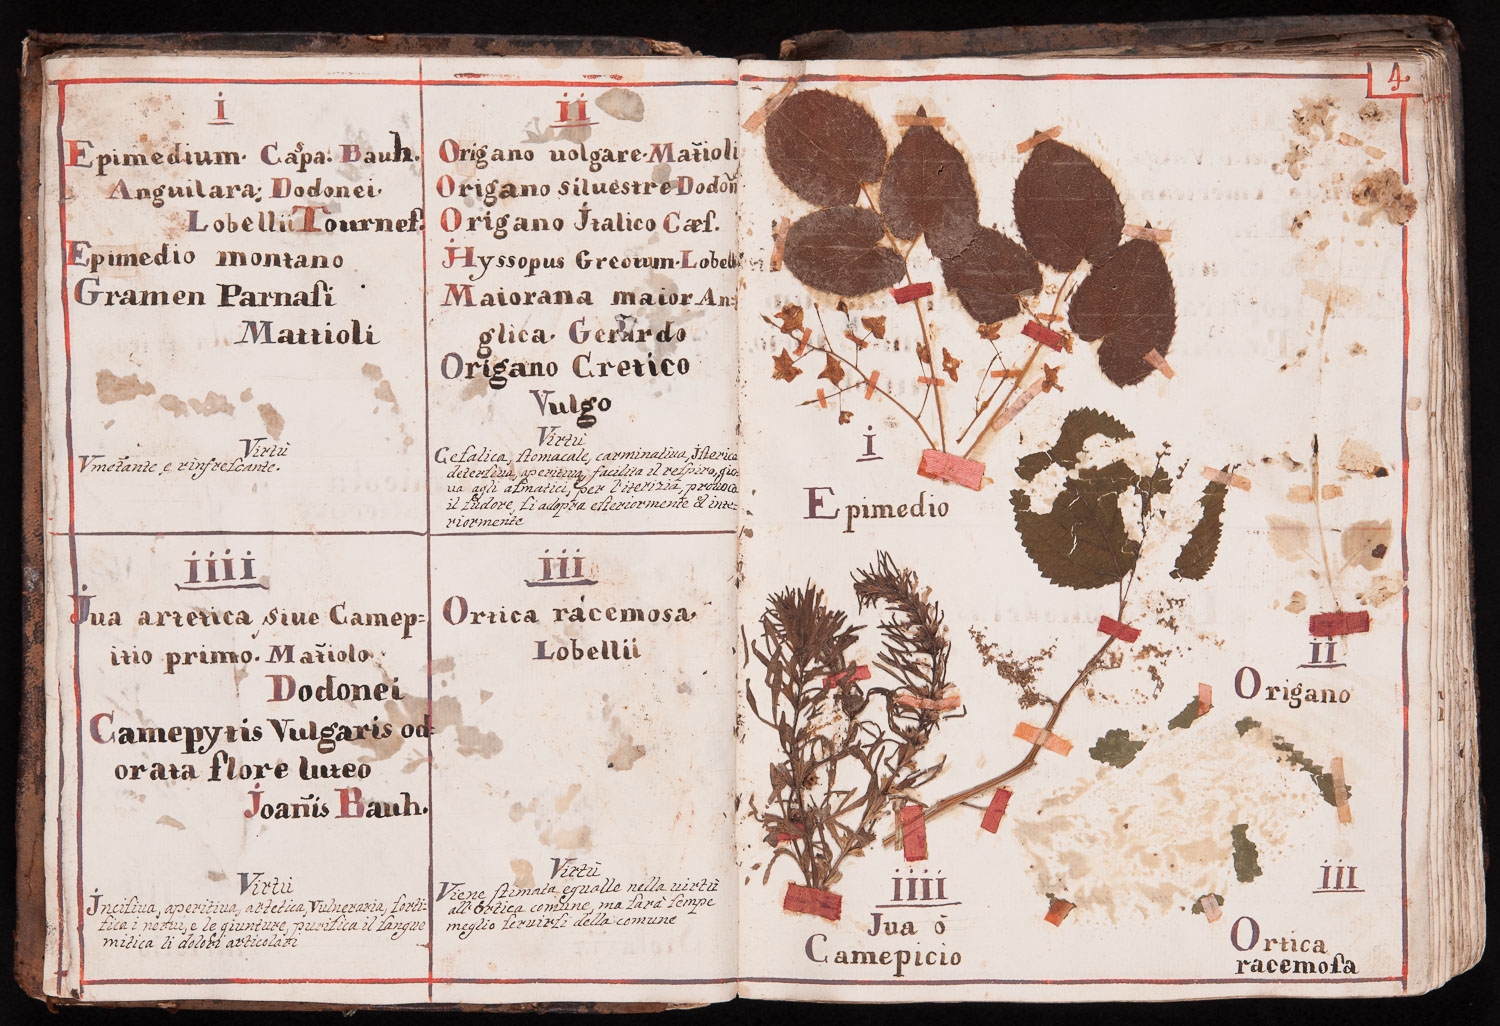 i
Epimedium. Caspa: Bauh.
Anguilara; Dodonei.
Lobellii Tournef.
Epimedio montano
Gramen Parnasi
Mattioli
Virtù
Vmetante e rinfrescante.
ii
Origano uolgare. Matioli
Origano siluestre Dodon
Origano Jtalico Cæs.
Hyssopus Greoum. Lobell
Maiorana maior An=
glica. Gerardo
Origano Cretico
Vulgo
Virtù
Cefalica, stomacale, carminatiua, Jsterica
detersiua, aperitiua, facilita il respiro, gio=
ua agli asmatici, per l'iterizia, prouoca
il sudore, si adopra esteriormente & inte=
riormente
iiii
Jua artetica siue Camep=
itio primo. Matiolo
Dodonei
Camepytis Vulgaris od=
orata flore luteo
Joanis Bauh.
Virtù
Jncisiua, aperitiua, artetica, Vulneraria, forti=
fica i nerui, e le giunture, purifica il sangue
mitica li dolori articolari
iii
Ortica racemosa.
Lobellii
Virtù
Viene stimata eguale nella uirtù
all'Ortica comune, ma sarà sempe
meglio seruirsi della comune
4
i
Epimedio
ii
Origano
iiii
Jua ò
Camepicio
iii
Ortica
racemosa